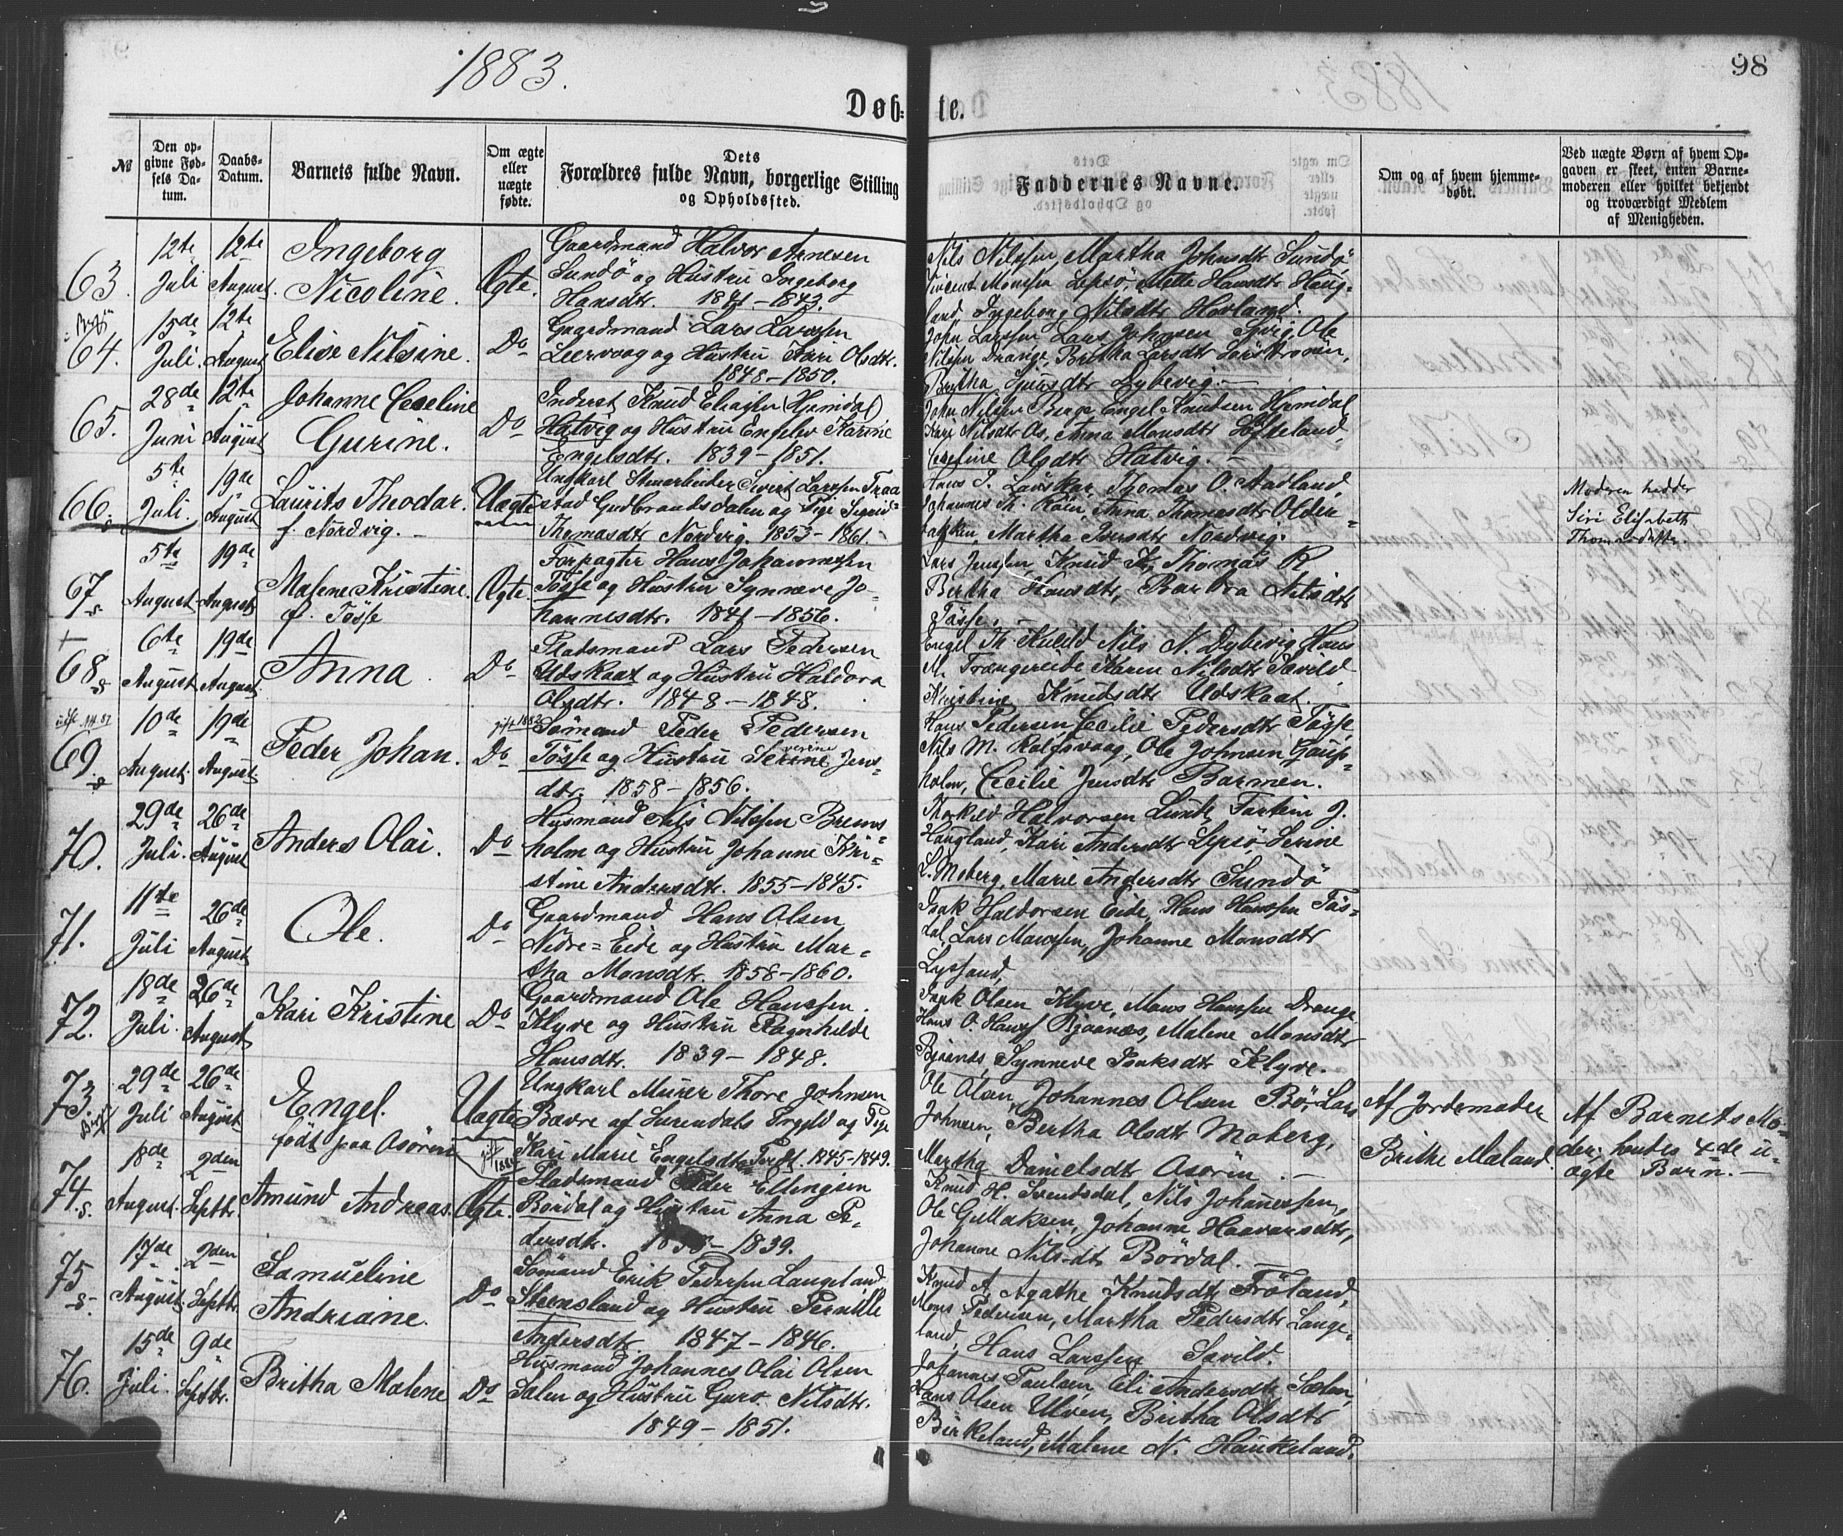 1883.
98
Døb-
te.
№
Den opgivne Fødsels Datum.
Daabs-Datum.
Barnets fulde Navn.
Om ægte eller uægte fødte.
Dets Forældres fulde Navn, borgerlige Stilling og Opholdssted.
Faddernes Navne.
Om og af hvem hjemmedøbt.
Ved uægte Børn af hvem Opgaven er skeet, enten Barnemoderen eller hvilket bekjendt og troværdigt Medlem af Menigheden.
63.
12te Juli
12te August.
Ingeborg
Nicoline.
Ægte.
Gaardmand Halvor Arnesen
Sundö og Hustru Ingeborg
Hansdtr. 1841-1843.
Nils Nilssen, Martha Johnsdtr Sundö,
Vincent Monsen Lepsö, Mette Hansdtr Haug-
land, Ingeborg Nilsdtr Hovland.
64.
15de Juli.
12te August
Elise Nilsine.
Do
Gaardmand Lars Larssen
Leervaag og Hustru Kari Olsdtr.
1848-1850.
John Larssen Lars Johnsen Ole
Nilssen Drange, Britha Larsdtr
Britha Dybevig.-
65.
28de Juni
12te August
Johanne Ceceline
Gurine.
Do
Inderst Knud Eliassen (Hjemdal)
Hatvig og Hustru Engelev Karine
Engelsdtr. 1839-1851.
John Nilssen Berge Engel Knudsen Hjemdal,
Kari Nilsdtr Os, Anna Monsdtr Lofteland,
Josefine Olsdtr Hatvig.-
66.
s
5te Juli.
19de August
Laurits Theodar.
f. Nordvig.-
Uægte
Ungkarl Stenarbeider Sivert Larssen Fraa
stad Gudbrandsdalen og Pige Sigrid
Thomasdtr. Nordvig. 1853-1861.
Hans J. Thomas O. Aadland,
Johannes Th. Röen, Anna Thomasdtr Older-
bakken Martha Iversdtr Nordvig.
Moderen hedder
Siri Elisabeth
Thomasdatter.
67.
s
5te August
19de August
Malene Kristine.
f. Tösse
Ægte
Forpagter Hans Johannessen
Tösse og Hustru Synneve Jo-
hannesdtr. 1841-1856.
Lars Jenssen, Knud K, Thomas R
Bertha Hansdtr, Barbra Nilsdtr
Tösse.
+
68.
s
6te August
19de August.
Anna.
Do
Pladsmand Lars Pedersen
Udskaat og Hustru Haldora
Olsdtr. 1848-1848.
Engel Th. Kuldd Nils N. Dybevig Hans
M. Trangereide Karen Nilsdtr Søvild
Kristine Knudsdtr Udskaat
69.
s
10de August.
19de August
Peder Johan.
gift 1882
Do
Sömand Peder Pedersen
Tösse og Hustru Serine Jens-
verine
dtr. 1858-1856.
Hans Pedersen, Cecilie Pedersdtr Tösse,
Nils M. Rolfsvaag, Ole Johnsen Gaup-
holm, Cecilie Jensdtr Barmen.
70.
29de Juli.
26de August
Anders Olai.
Do
Husmand Nils Nilssen Brems-
holm og Hustru Johanne Kri-
stine Andersdtr. 1855-1845.
Halvorsen Lund, Torkien J.
Haugland, Kari Andersdtr Lepsö Serine
L. Moberg, Marie Andersdtr Sundö
71.
11te Juli
26de August
Ole.
Do
Gaardmand Hans Olsen
Nedre-Eide og Hustru Mar-
tha Monsdtr. 1858-1860.
Isak Haldorsen Eide, Hans Hanssen Tös-
dal, Lars Monssen, Johanne Monsdtr
Lyssand.
72.
18de Juli.
26de August
Kari Kristine
Do
Gaardmand Ole Hanssen
Klyve og Hustru Ragnhilde
Hansdtr. 1839-1848.
Isak Olsen Klyve, Mons Hanssen Drange
Hans O. Hanss Bjaanæs, Malene Monsdtr
Bjaanæs, Synneve Isaksdtr Klyve.
73.
29de Juli
26de August
Engel.
født paa Asören
Uægte
Ungkarl Murer Thore Johnsen
Bævre af Surendals Prgjld og Pige
Kari Marie Engelsdtr 1845-1849.
Ole Olsen, Johannes Olsen Bö, Lars
Johnsen, Bertha Olsdtr Moberg,
Martha Danielsdtr Asören.-
Af Jordemoder
Brithe Mæland.
Af Barnets Mo-
der; hendes 4de u-
ægte Barn.-
74.
s.
18de August.
2den Septbr.
Amund Andreas.
gift 188
Ægte.
Pladsmand Peder Ellingsen
Bördal og Hustru Anna Pe-
dersdtr. 1838-1839.
Knud H. Svendsdal, Nils Johannessen,
Ole G. Maksen, Johanne Haavarsdtr,
Johanne Nilsdtr Bördal.-
75.
s.
17de August.
2den Septbr.
Samueline
Andriane.
Do
Sömand Erik Pedersen Langeland
Steensland og Hustru Pernille
Andersdtr. 1847-1846.
Knud A, Agathe Knudsdtr Fröland,
Mons Pedersen, Martha Pedersdtr Lange-
land, Hans Larssen Søvild.
76.
15de Juli.
9de Septbr.
Britha Malene
Do
Husmand Johannes Olai Olsen
Salen og Hustru Guro Nilsdtr.
1849-1851.
Johannes Paulsen, Eli Andersdtr Salen,
Hans Olsen Ulven, Britha Olsdtr
Birkeland, Malene N. Haukeland.